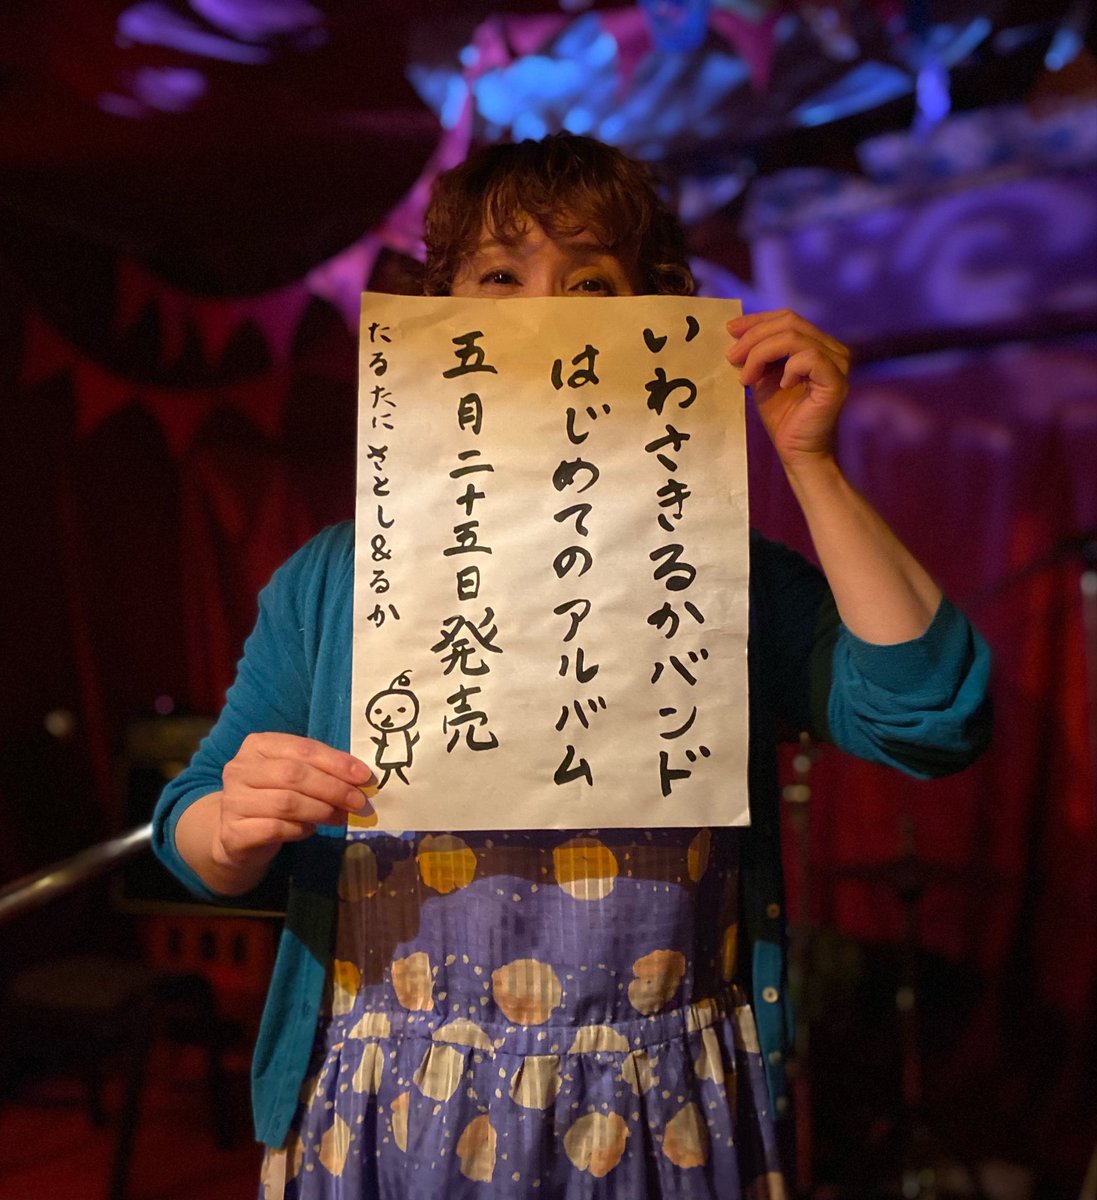 いわさきるかバンド
はじめてのアルバム
五月二十五日発売
たるたにさとし&るか